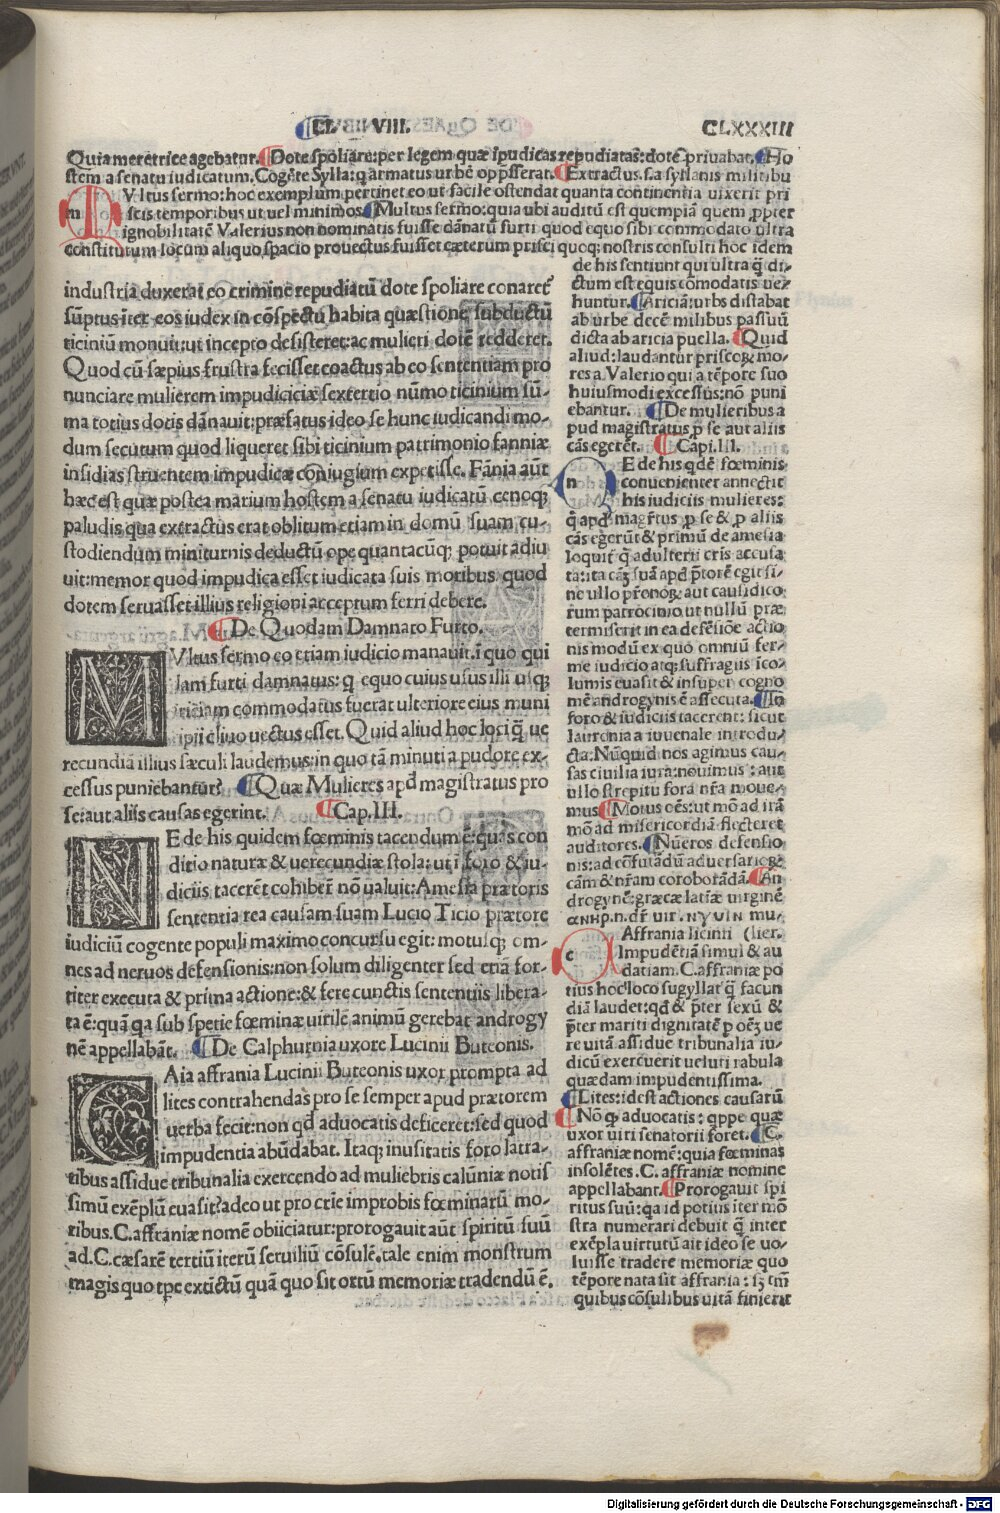 LI. VIII. CLXXXIII
Quia meretrice agebatur. Dote spoliare: per legem quæ ĩpudicas repudiatas: dotē priuabat. Ho
stem a senatu iudicatum. Cogēte Sylla: q armatus urbē opp̃sserat. Extractus. s. a syllanis militibu
Vltus sermo: hoc exemplum pertinet eo ut facile ostendat quanta continentia uixerit pri
m scis temporibus ut uel minimos Multus sermo: quia ubi auditū est quempiā quem ꝓpter
ignobilitatē Valerius non nominatis fuisse dānatū furti quod equo sibi commodato ultra
constitutum locum aliquo spacio prouectus fuisset cæterum prisci quoq; nostris consulti hoc idem
industria duxerat eo crimine repudiatū dote spoliare conaret̃
sũptus iter eos iudex in cōspectu habita quæstione subductū
ticiniū monuit: ut incepto desisteret: ac mulieri dotē redderet.
Quod cū sæpius frustra fecisset coactus ab eo sententiam pro
nunciare mulierem impudiciciæ sextertio nūmo ticinium sū-
ma totius dotis dānauit: præfatus ideo se hunc iudicandi mo-
dum secutum quod liqueret sibi ticinium patrimonio fanniæ
insidias struentem impudicæ coniugium expetisse. Fānia aūt
hæc est quæ postea marium hostem a senatu iudicatū cenoq;
paludis qua extractus erat oblitum etiam in domū suam cu-
stodiendum miniturnis deductū ope quantacūq; potuit adiu
uit: memor quod impudica esset iudicata suis moribus quod
dotem seruasset illius religioni acceptum ferri debere.
De Quodam Damnato Furto.
MVltus sermo eo etiam iudicio manauit. ĩ quo qui
lam furti damnatus: q equo cuius usus illi usq;
ariciam commodatus fuerat ulteriore eius muni
ipii cliuo uectus esset. Quid aliud hoc loci q̃ ue
recundiā illius sæculi laudemus: in quo tā minuti a pudore ex-
cessus puniebantur? Quæ Mulieres apd̃ magistratus pro
se iaut aliis causas egerint. Cap. III.
NE de his quidem fœminis tacendum ē: quas con
ditio naturæ & uerecundiæ stola: ut ĩ foro & iu-
diciis tacerēt cohiberē nō ualuit: Amesia prætoris
sententia rea causam suam Lucio Ticio prætore
iudiciū cogente populi maximo concursu egit: motusq; om-
nes ad neruos defensionis: non solum diligenter sed etiā for-
titer executa & prima actione: & fere cunctis sententiis libera-
ta ē: quā qa sub spetie fœminæ uirilē animū gerebat androgy
nē appellabāt. De Calphurnia uxore Lucinii Buteonis.
CAia affrania Lucinii Buteonis uxor prompta ad
lites contrahendas pro se semper apud prætorem
uerba fecit: non qd̃ aduocatis deficeret: sed quod
impudentia abūdabat. Itaq; inusitatis foro latra-
tibus assidue tribunalia exercendo ad muliebris calūniæ notis
simū exēplū euasit? adeo ut pro crīe improbis fœminarū mo-
ribus. C. affraniæ nomē obiiciatur: prorogauit aūt spiritū suū
ad. C. cæsarē tertiū iterū seruiliū cōsulē. tale enim monstrum
magis quo tpe extictū quā quo sit ortū memoriæ tradendū ē.
de his sentiunt qui ultra q̃ di-
ctum est equis cōmodatis ue-
huntur. Ariciā: urbs distabat
ab urbe decē milibus passuū
dicta ab aricia puella. Quid
aliud: laudantur priscoꝝ mo-
res a. Valerio qui a tēpore suo
huiusmodi excessus: nō puni
ebantur. De mulieribus a
pud magistratus ꝓ se aut aliis
cās egerēt. Capi. III.
nE de his qdē fœminis
conuenienter annectit
his iudiciis mulieres:
q̃ apd̃ magr̃tus ꝓ se & ꝓ aliis
cās egerūt & primū de amesia
loquit̃ q̃ adulterii cris accusa
ta: ita cāz suā apd̃ p̃torē egit si-
ne ullo pr̃onoꝝ: aut causidico
rum patrocinio ut nullū præ
termiserit in ea defēsiōe actio
nis modū ex quo omniū fer-
me iudicio atq; suffragiis ĩco-
lumis euasit & insuper cogno
mē androgynis ē assecuta. In
foro & iudiciis tacerent: sicut
lauronia a iuuenale introdu-
cta: Nūquid nos agimus cau-
sas ciuilia iura: nouimus: aut
ullo strepitu fora nr̃a moue-
mus Motus oēs: ut mō ad irā
mō ad misericordiā flecteret
auditores. Nūeros defensio
nis: ad cōfutādū aduersarioꝝ
cām & nr̃am coroborādā. An
drogynē: græcæ latiæ uirginē
ανηρ. n. dr̃ uir. ΝΥΥΙΝ mu-
Affrania licinii (lier.
c Impudētiā simul & au
datiam. C. affraniæ po
tius hoc loco sugyllat q̃ facun
diā laudet: qd̃ & p̃ter sexū &
p̃ter mariti dignitatē ꝓ oēs ue
re uitā assidue tribunalia iu-
dicū exercuerit ueluti rabula
quædam impudentissima.
Lites: idest actiones causarū
Nō q̃ aduocatis: qppe quæ
uxor uiri senatorii foret. C.
affraniæ nomē: quia fœminas
insolētes. C. affraniæ nomine
appellabant. Prorogauit spi
ritus suū: qa id potius iter mō
stra numerari debuit q̃ inter
exēpla uirtutū ait ideo se uo-
luisse tradere memoriæ quo
tēpore nata sit affrania: sꝫ tm̄
quibus cōsulibus uitā finierit
Digitalisierung gefördert durch die Deutsche Forschungsgemeinschaft - DFG